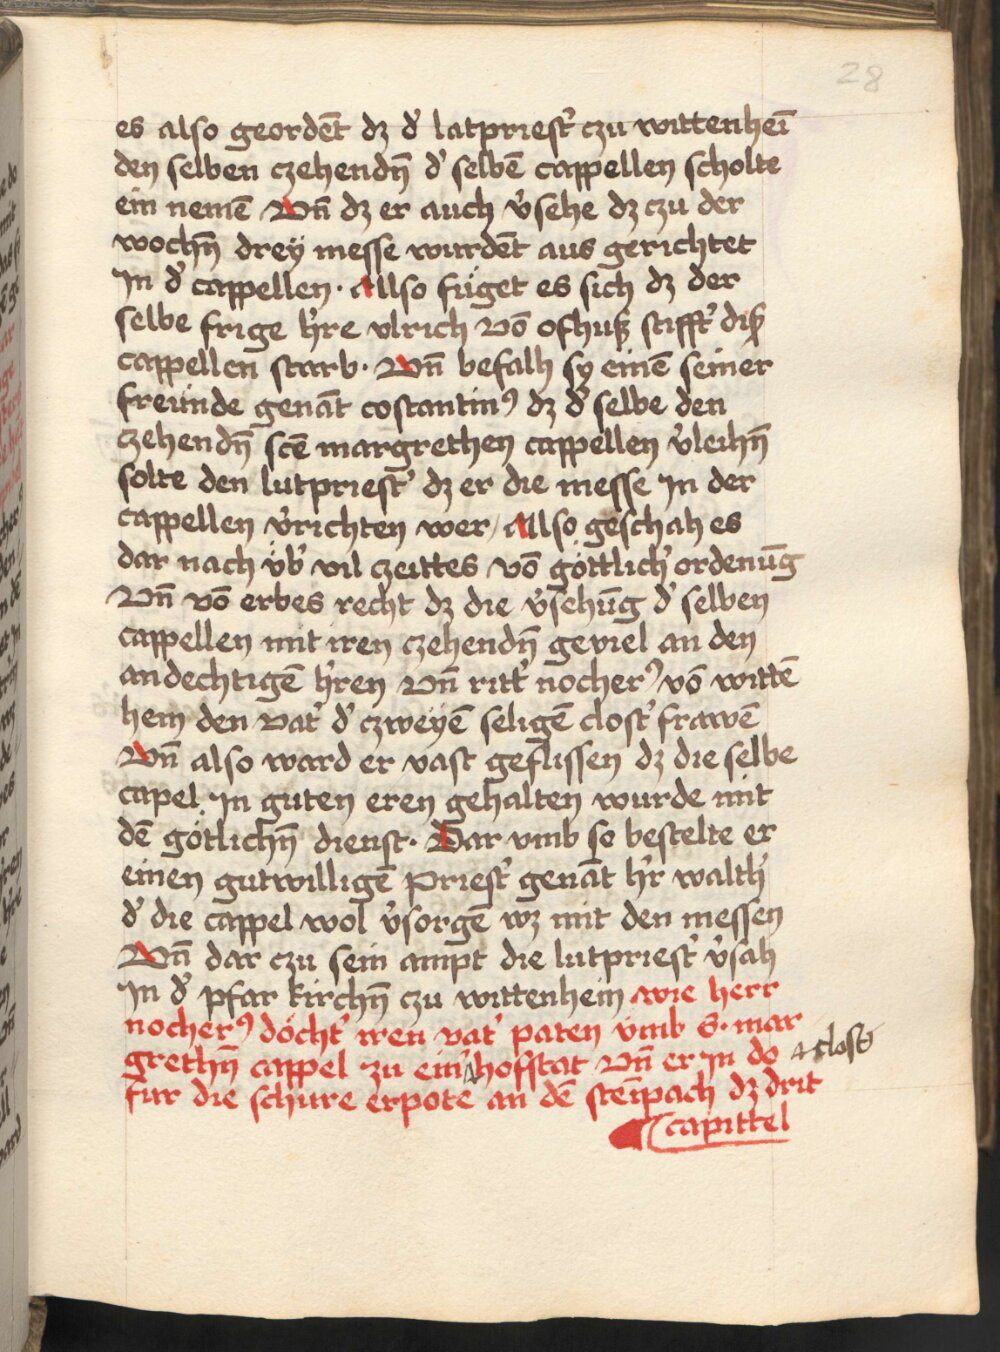 28
es also geordēt dz d' latpriest' czu wittenheī
den selben czehendn̄ d' selbē cappellen scholte
ein nemē Vn̄ dz er auch v'sehe dz czu der
wochn̄ drey messe wurdēt aus gerichtet
In d' cappellen. Allso füget es sich dz der
selbe frige h're vlrich võ ofhuß stifft' diß
cappellen starb. Vn̄ befalh sy einē seiner
freunde genāt costantin⁹ dz d' selbe den
czehendn̄ scē margrethen cappellen v'leihn̄
solte den lutpriest' dz er die messe In der
cappellen v'richten wer / Allso geschah es
dar nach üb' vil czeittes võ göttlich' ordenūg
Vn̄ võ erbes recht dz die v'sehūg d' selben
cappellen mit iren czehendn̄ geviel an den
andechtigē h'ren Vn̄ ritt' nocher⁹ võ wittē
hein den vat' d' czweyē seligē clost' frawē
Vn̄ also ward er vast geflissen dz die selbe
capel In guten eren gehalten wurde mit
dē götlichn̄ dienst. Dar vmb so bestelte er
einen gutwilligē Priest' genāt h'r walth'
d' die cappel wol v'sorgē wz mit den messen
Vn̄ dar czu sein ampt die lutpriest' v'sah
In d' pfar kirchn̄ czu wittenhein wie herr
nocher⁹ döcht' iren vat' paten vmb S. mar
grethn̄ cappel zu ein' hofstat Vn̄ er In do clost'
für die schure erpote an dē steīpach dz drit
capittel